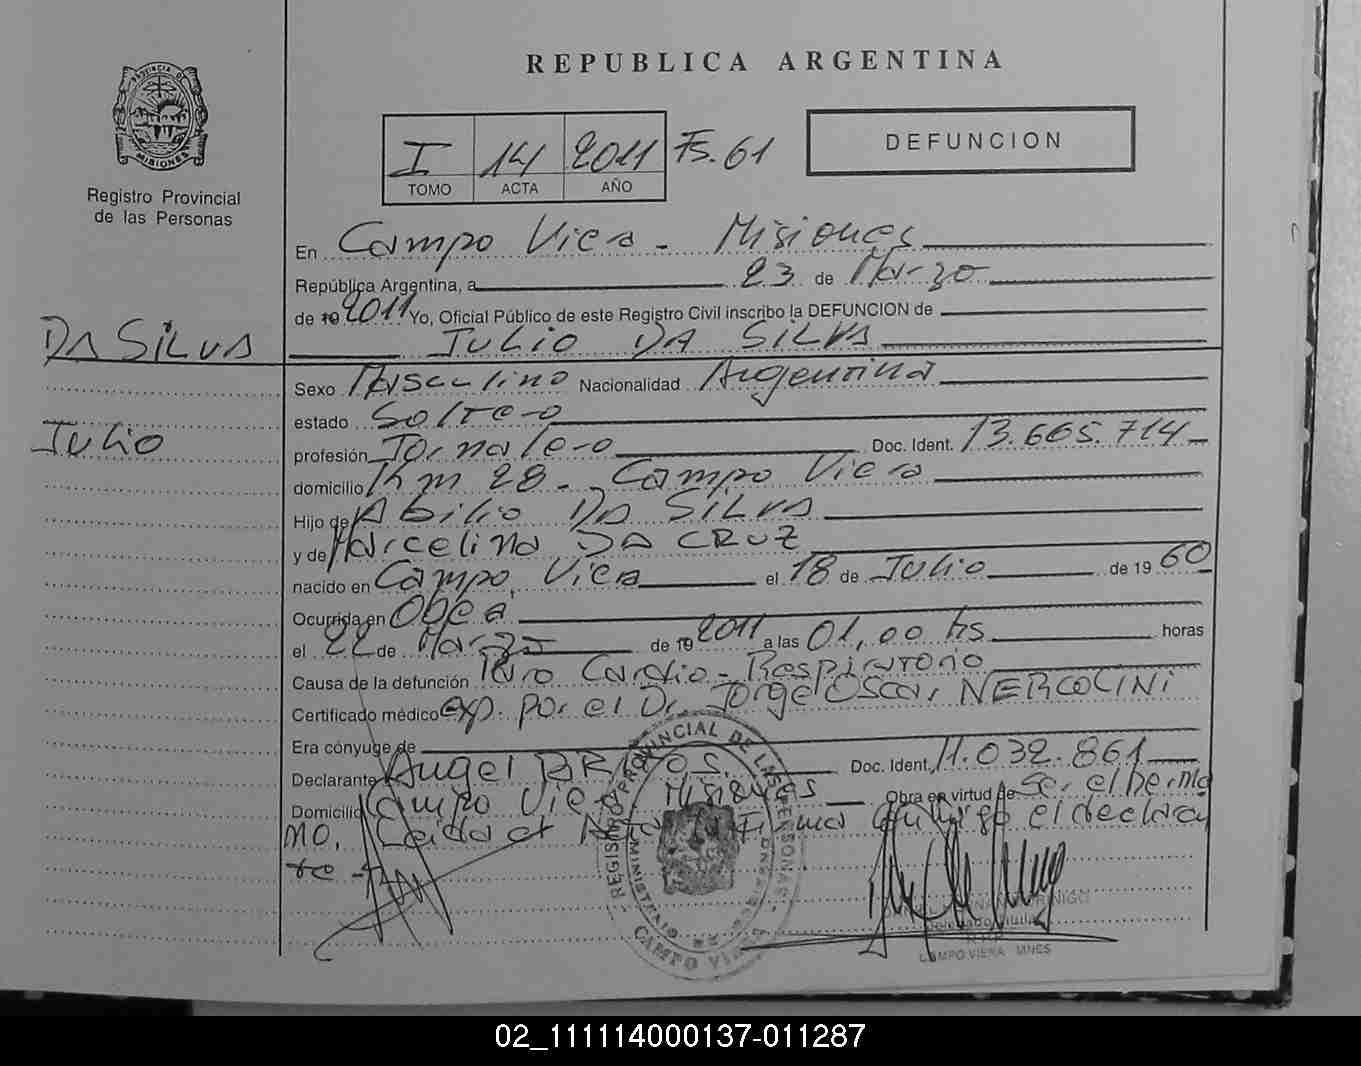 REPUBLICA ARGENTINA
PROVINCIA DE MISIONES
Registro Provincial
de las Personas
I 14 2011 Fs. 61
TOMO ACTA AÑO
DEFUNCION
En Campo Viera - Misiones
República Argentina, a 23 de Marzo
de 19 2011 Yo, Oficial Público de este Registro Civil inscribo la DEFUNCION de
DA SILVA
JULIO DA SILVA
Sexo Masculino Nacionalidad Argentina
estado Soltero
Julio
profesión Jornalero Doc. Ident. 13.665.714
domicilio Km 28 - Campo Viera
Hijo de Abilio DA SILVA
y de Marcelina DA CRUZ
nacido en Campo Viera el 18 de Julio de 19 60
Ocurrida en Obera
el 22 de Marzo de 19 2011 a las 01,00 hs horas
Causa de la defunción Paro Cardio-Respiratorio
Certificado médico exp. por el Dr. Jorge Oscar NERCOLINI
Era cónyuge de
Declarante Angel Doc. Ident. 11.032.861
Domicilio Campo Viera Misiones Obra en virtud de Ser el herma
no. Leida el Acta Firma el declaran
te
REGISTRO PROVINCIAL DE LAS PERSONAS
CAMPO VIERA
CAMPO VIERA MNES
02_111114000137-011287